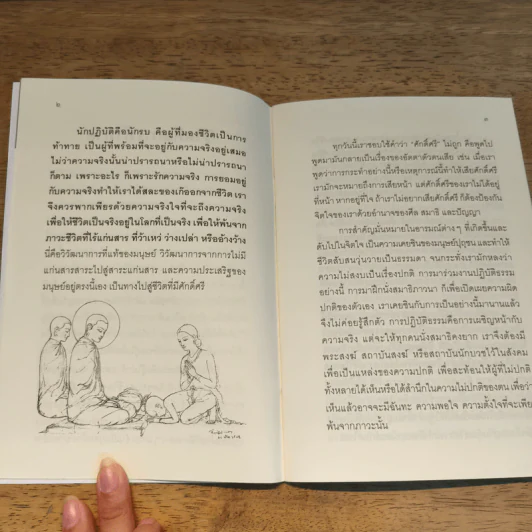 ๒
นักปฏิบัติคือนักรบ คือผู้ที่มองชีวิตเป็นการ
ท้าทาย เป็นผู้ที่พร้อมที่จะอยู่กับความจริงอยู่เสมอ
ไม่ว่าความจริงนั้นน่าปรารถนาหรือไม่น่าปรารถนา
ก็ตาม เพราะอะไร ก็เพราะรักความจริง การยอมอยู่
กับความจริงทำให้เราได้สละของเก๊ออกจากชีวิต เรา
จึงควรพากเพียรด้วยความจริงใจที่จะถึงความจริง
เพื่อให้ชีวิตเป็นจริงอยู่ในโลกที่เป็นจริง เพื่อให้พ้นจาก
ภาวะชีวิตที่ไร้แก่นสาร ที่ว้าเหว่ ว่างเปล่า หรืออ้างว้าง
นี่คือวิวัฒนาการที่แท้ของมนุษย์ วิวัฒนาการจากการไม่มี
แก่นสารสาระไปสู่สาระแก่นสาร และความประเสริฐของ
มนุษย์อยู่ตรงนี้เอง เป็นทางไปสู่ชีวิตที่มีศักดิ์ศรี
๓
ทุกวันนี้เราชอบใช้คำว่า "ศักดิ์ศรี" ไม่ถูก คือพูดไป
พูดมามันกลายเป็นเรื่องของอัตตาตัวตนเสีย เช่น เมื่อเรา
พูดว่าการกระทำอย่างนี้หรือเหตุการณ์นี้ทำให้เสียศักดิ์ศรี
เรามักจะหมายถึงการเสียหน้า แต่ศักดิ์ศรีของเราไม่ได้อยู่
ที่หน้า หากอยู่ที่ใจ ถ้าเราไม่อยากเสียศักดิ์ศรี ก็ต้องป้องกัน
จิตใจของเราด้วยอำนาจของศีล สมาธิ และปัญญา
การสำคัญมั่นหมายในอารมณ์ต่างๆ ที่เกิดขึ้นและ
ดับไปในจิตใจ เป็นความเคยชินของมนุษย์ปุถุชน และทำให้
ชีวิตสับสนวุ่นวายเป็นธรรมดา จนกระทั่งเรามักหลงว่า
ความไม่สงบเป็นเรื่องปกติ การมาร่วมงานปฏิบัติธรรม
อย่างนี้ การมาฝึกนั่งสมาธิภาวนา ก็เพื่อเปิดเผยความผิด
ปกติของตัวเอง เราเคยชินกับการเป็นอย่างนี้มานานแล้ว
จึงไม่ค่อยรู้สึกตัว การปฏิบัติธรรมคือการเผชิญหน้ากับ
ความจริง แต่จะให้ทุกคนนั่งสมาธิคงยาก เราจึงต้องมี
พระสงฆ์ สถาบันสงฆ์ หรือสถาบันนักบวชไว้ในสังคม
เพื่อเป็นแหล่งของความปกติ เพื่อสะท้อนให้ผู้ที่ไม่ปกติ
ทั้งหลายได้เห็นหรือได้สำนึกในความไม่ปกติของตน เพื่อว่า
เห็นแล้วอาจจะมีฉันทะ ความพอใจ ความตั้งใจที่จะเพียร
พ้นจากภาวะนั้น